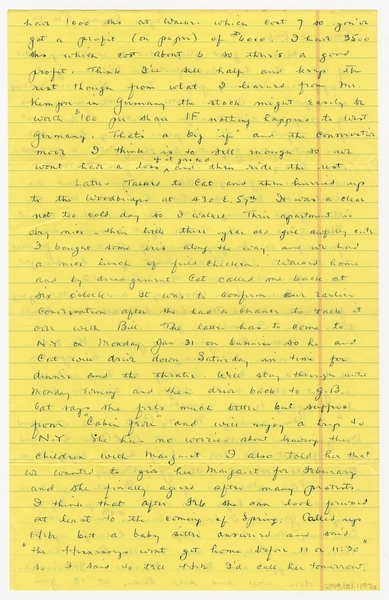 have 1000 shs at Wacker which cost 7 so you've
got a profit (on paper) of $4000. I have 3500
shs which cost about 6 so there's a good
profit. Think I'll sell half and keep the
rest though from what I learned from Mr.
Kempner in Germany the stock might easily be
worth $100 per share IF nothing happens to West
Germany. That's a big "if" and the conservative
move I think is to sell enough so we
won't have a loss if it goes to 0 and then ride the rest.
Later Talked to Cat and then hurried up
to the Woodbridges at 430 E. 57th. It was a clear
not too cold day so I walked. Their apartment is
very nice - their little three year old girl awfully cute.
I bought some iris along the way and we had
a nice lunch of fried chicken. Walked home
and by arrangement Cat called me back at
six o'clock. It was to confirm our earlier
conversation after she had a chance to talk it
over with Bill. The latter has to come to
N.Y. on Monday Jan 31 on business so he and
Cat will drive down Saturday in time for
dinner and the theatre. We'll stay through until
Monday Evening and then drive back to G.B.
Cat says she feels much better but suffers
from "Cabin fever" and will enjoy a trip to
N.Y. She has no worries about leaving the
children with Margaret. I also told her that
we wanted to give her Margaret for February
and she finally agreed after many protests.
I think that after Feb she can look forward
at least to the coming of Spring. Called up
but a baby sitter answered and said
"the won't get home before 11 or 11:30"
so I said to tell I'd call her tomorrow.